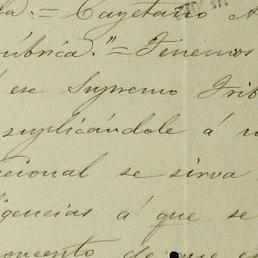 a.= Cayetano A
úbrica."= Tenemos
ese Supremo Trib
suplicándole á
cional se sirva
igencias á que se
oncepto de que